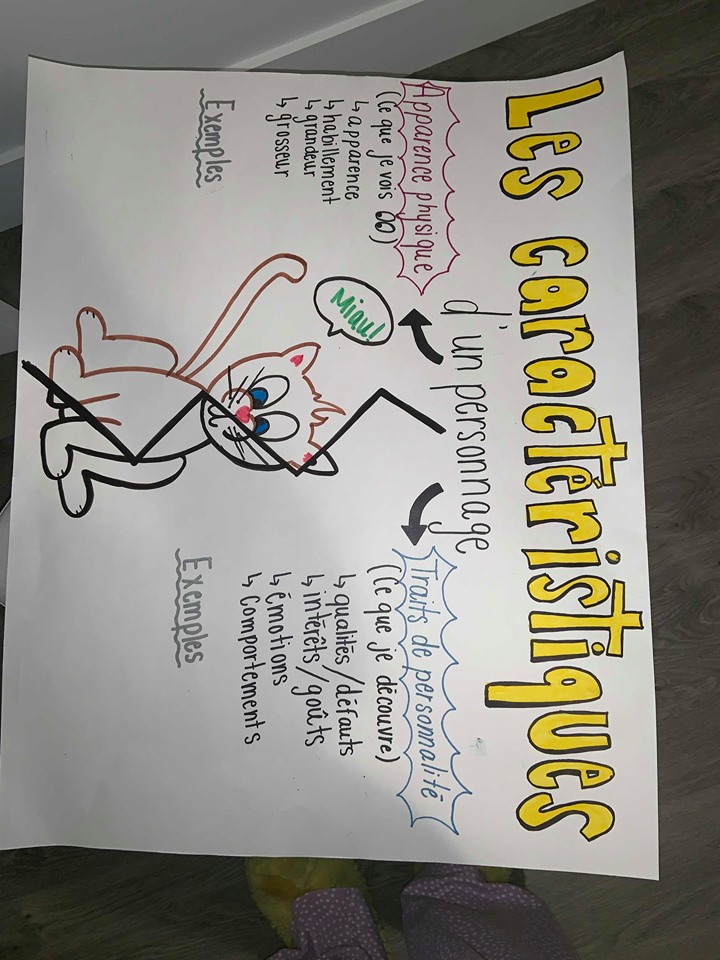 Les caractéristiques
d'un personnage
Apparence physique
(Ce que je vois)
↳ apparence
↳ habillement
↳ grandeur
↳ grosseur
Exemples
Miau!
Traits de personnalité
(Ce que je découvre)
↳ qualités/défauts
↳ intérêts/goûts
↳ émotions
↳ comportements
Exemples